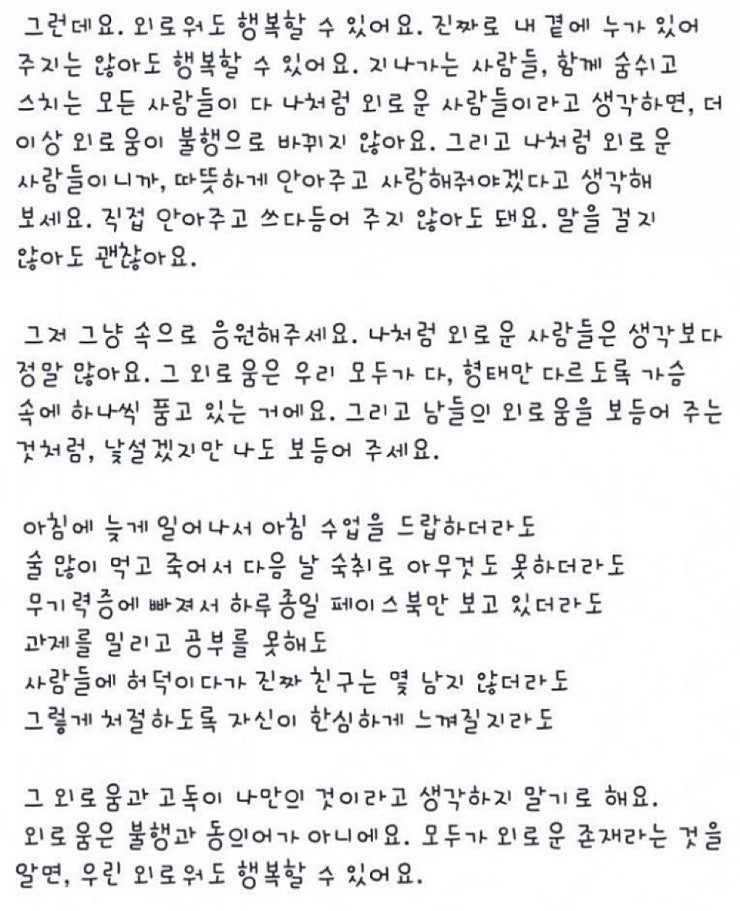 그런데요. 외로워도 행복할 수 있어요. 진짜로 내 곁에 누가 있어
주지는 않아도 행복할 수 있어요. 지나가는 사람들, 함께 숨쉬고
스치는 모든 사람들이 다 나처럼 외로운 사람들이라고 생각하면, 더
이상 외로움이 불행으로 바뀌지 않아요. 그리고 나처럼 외로운
사람들이니까, 따뜻하게 안아주고 사랑해줘야겠다고 생각해
보세요. 직접 안아주고 쓰다듬어 주지 않아도 돼요. 말을 걸지
않아도 괜찮아요.
그저 그냥 속으로 응원해주세요. 나처럼 외로운 사람들은 생각보다
정말 많아요. 그 외로움은 우리 모두가 다, 형태만 다르도록 가슴
속에 하나씩 품고 있는 거에요. 그리고 남들의 외로움을 보듬어 주는
것처럼, 낯설겠지만 나도 보듬어 주세요.
아침에 늦게 일어나서 아침 수업을 드랍하더라도
술 많이 먹고 죽어서 다음 날 숙취로 아무것도 못하더라도
무기력증에 빠져서 하루종일 페이스북만 보고 있더라도
과제를 밀리고 공부를 못해도
사람들에 허덕이다가 진짜 친구는 몇 남지 않더라도
그렇게 처절하도록 자신이 한심하게 느껴질지라도
그 외로움과 고독이 나만의 것이라고 생각하지 말기로 해요.
외로움은 불행과 동의어가 아니에요. 모두가 외로운 존재라는 것을
알면, 우린 외로워도 행복할 수 있어요.